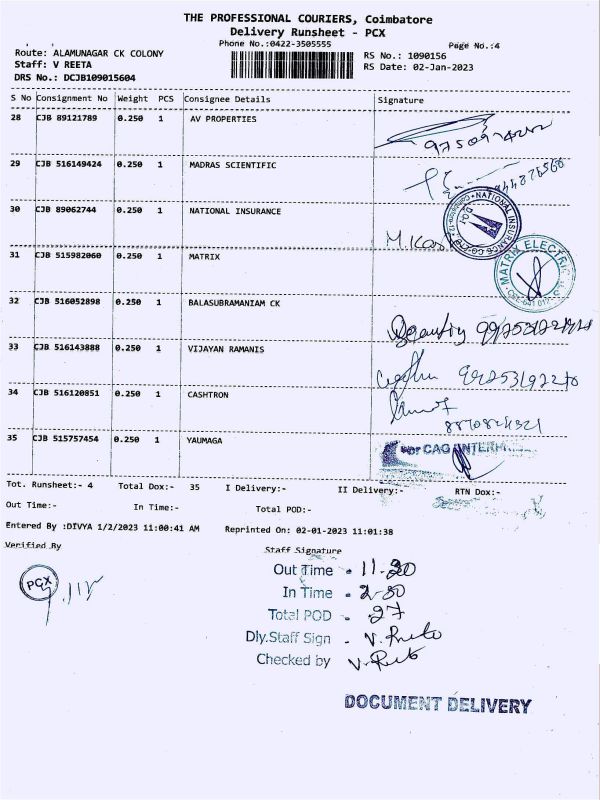 THE PROFESSIONAL COURIERS, Coimbatore
Delivery Runsheet - PCX
Phone No.:0422-3505555 Page No.:4
Route: ALAMUNAGAR CK COLONY RS No.: 1090156
Staff: V REETA RS Date: 02-Jan-2023
DRS No.: DCJB109015604
S No Consignment No Weight PCS Consignee Details Signature
28 CJB 89121789 0.250 1 AV PROPERTIES
29 CJB 516149424 0.250 1 MADRAS SCIENTIFIC
30 CJB 89062744 0.250 1 NATIONAL INSURANCE
NATIONAL INSURANCE CO LTD
31 CJB 515982060 0.250 1 MATRIX
MATRIX ELECTRIC
32 CJB 516052898 0.250 1 BALASUBRAMANIAM CK
33 CJB 516143888 0.250 1 VIJAYAN RAMANIS
34 CJB 516120851 0.250 1 CASHTRON
35 CJB 515757454 0.250 1 YAUMAGA
For CAG
Tot. Runsheet:- 4 Total Dox:- 35 I Delivery:- II Delivery:- RTN Dox:-
Out Time:- In Time:- Total POD:-
Entered By :DIVYA 1/2/2023 11:00:41 AM Reprinted On: 02-01-2023 11:01:38
Verified By Staff Signature
PCX
Out Time - 11.20
In Time - 2-30
Total POD - 27
Dly.Staff Sign - V. Reeta
Checked by V. Reeta
DOCUMENT DELIVERY